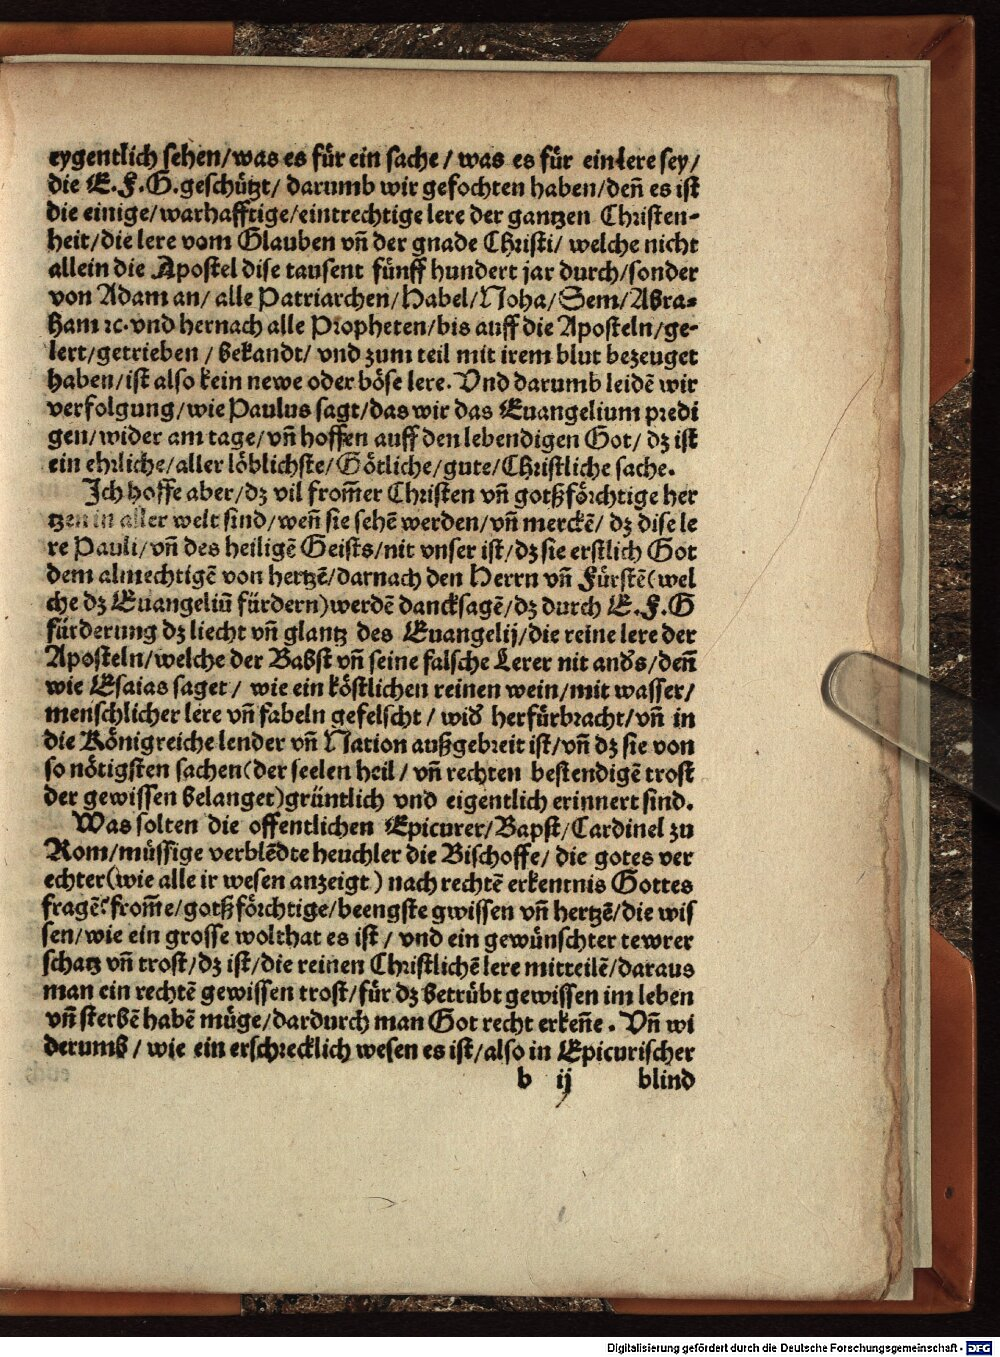 eygentlich sehen/was es für ein sache / was es für ein lere sey/
die E.F.G.geschützt/ darumb wir gefochten haben/deñ es ist
die einige/warhafftige/eintrechtige lere der gantzen Christen-
heit/die lere vom Glauben vñ der gnade Christi/ welche nicht
allein die Apostel dise tausent fünff hundert jar durch/sonder
von Adam an/ alle Patriarchen/Habel/Noha/Sem/Abra-
ham ꝛc.vnd hernach alle Propheten/bis auff die Aposteln/ge-
lert/getrieben / bekandt/ vnd zum teil mit irem blut bezeuget
haben/ist also kein newe oder böse lere. Vnd darumb leidē wir
verfolgung/wie Paulus sagt/das wir das Euangelium predi
gen/wider am tage/vñ hoffen auff den lebendigen Got/ dz ist
ein ehrliche/aller löblichste/Götliche/gute/Christliche sache.
Ich hoffe aber/dz vil from̃er Christen vñ gotßförchtige her
tzen in aller welt sind/weñ sie sehē werden/vñ merckē/ dz dise le
re Pauli/vñ des heiligē Geists/nit vnser ist/dz sie erstlich Got
dem almechtigē von hertzē/darnach den Herrn vñ Fürstē(wel
che dz Euangeliũ fürdern)werdē dancksagē/dz durch E.F.G
fürderung dz liecht vñ glantz des Euangelij/die reine lere der
Aposteln/welche der Babst vñ seine falsche Lerer nit andš/deñ
wie Esaias saget / wie ein köstlichen reinen wein/mit wasser/
menschlicher lere vñ fabeln gefelscht / wid̕ herfürbracht/vñ in
die Königreiche lender vñ Nation außgebreit ist/vñ dz sie von
so nötigsten sachen(der seelen heil / vñ rechten bestendigē trost
der gewissen belanget)gründtlich vnd eigentlich erinnert sind.
Was solten die offentlichen Epicurer/Bapst/Cardinel zu
Rom/müssige verblēdte heuchler die Bischoffe/ die gotes ver
echter(wie alle ir wesen anzeigt) nach rechtē erkentnis Gottes
fragē? from̃e/gotßförchtige/beengste gwissen vñ hertzē/die wis
sen/wie ein grosse wolthat es ist / vnd ein gewünschter tewrer
schatz vñ trost/dz ist/die reinen Christlichē lere mitteilē/daraus
man ein rechtē gewissen trost/für dz betrübt gewissen im leben
vñ sterbē habē müge/dardurch man Got recht erkeñe . Vñ wi
derumb / wie ein erschrecklich wesen es ist/also in Epicurischer
b ij blind
Digitalisierung gefördert durch die Deutsche Forschungsgemeinschaft - DFG